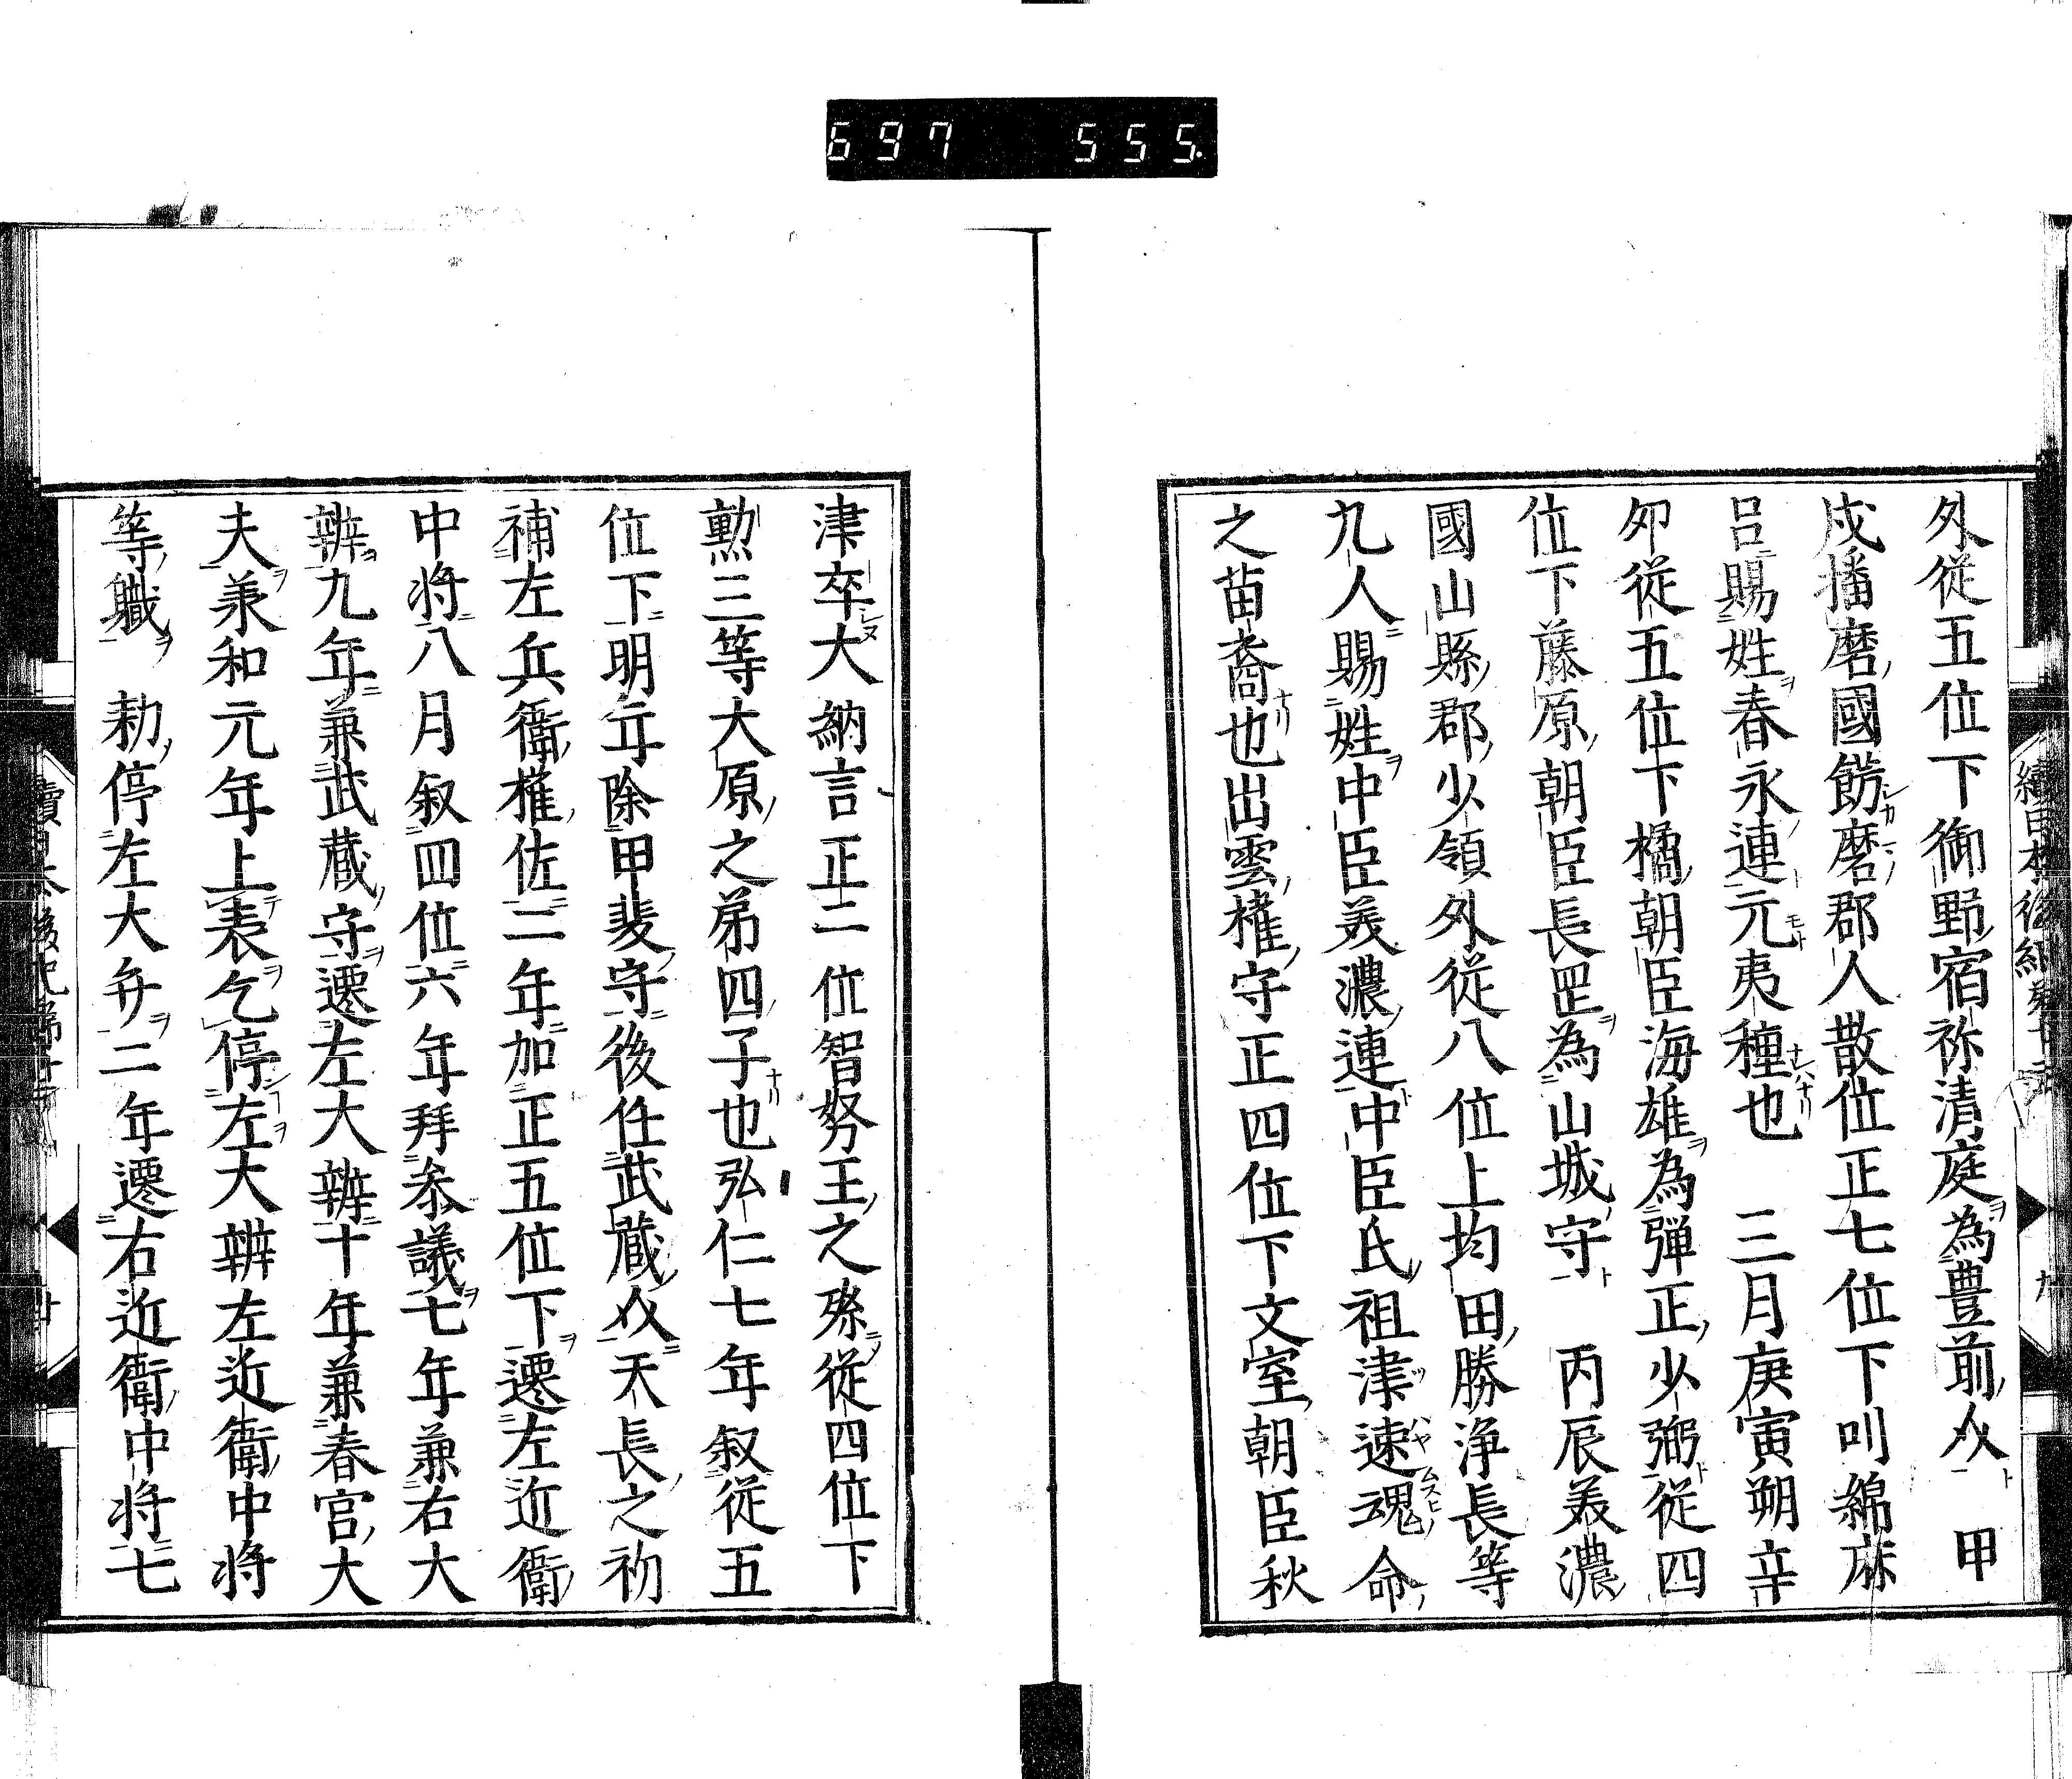 697 555
外從五位下御野宿祢清庭為豊前介 甲
戌播磨國餝磨郡人散位正七位下叫綿麻
呂賜姓春永連元夷種也 三月庚寅朔辛
卯從五位下橘朝臣海雄為弾正少弼從四
位下藤原朝臣長罡為山城守 丙辰美濃
國山縣郡少領外從八位上均田勝浄長等
九人賜姓中臣美濃連中臣氏祖津速魂命
之苗裔也出雲權守正四位下文室朝臣秋
津卒大納言正二位智努王之孫從四位下
勲三等大原之弟四子也弘仁七年叙從五
位下明年除甲斐守後任武蔵介天長之初
補左兵衛權佐二年加正五位下遷左近衛
中将八月叙四位六年拜叅議七年兼右大
辨九年兼武蔵守遷左大辨十年兼春宮大
夫承和元年上表乞停左大辨左近衛中将
等職 勅停左大弁二年遷右近衛中将七